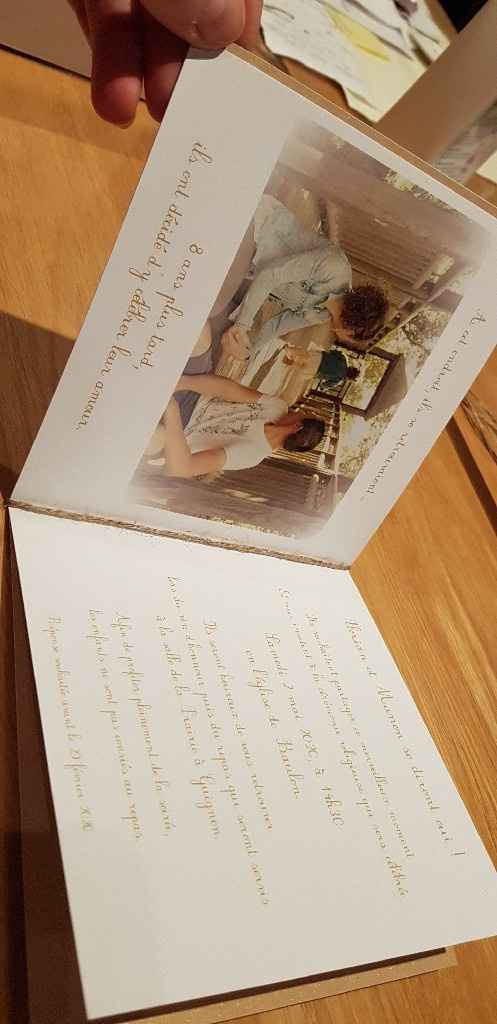 A cet endroit, ils se retrouvaient...
8 ans plus tard,
ils ont décidé d'y célébrer leur amour.
et Manon se diront oui !
Ils souhaitent partager ce merveilleux moment
Et vous invitent à la cérémonie religieuse qui sera célébrée
Samedi 2 mai 2020, à 14h30
en l'église de Baulon.
Ils seront heureux de vous retrouver
lors du vin d'honneur puis du repas qui seront servis
à la salle de la Prairie à Guignen.
Afin de profiter pleinement de la soirée,
les enfants ne sont pas conviés au repas.
Réponse souhaitée avant le 29 février 2020